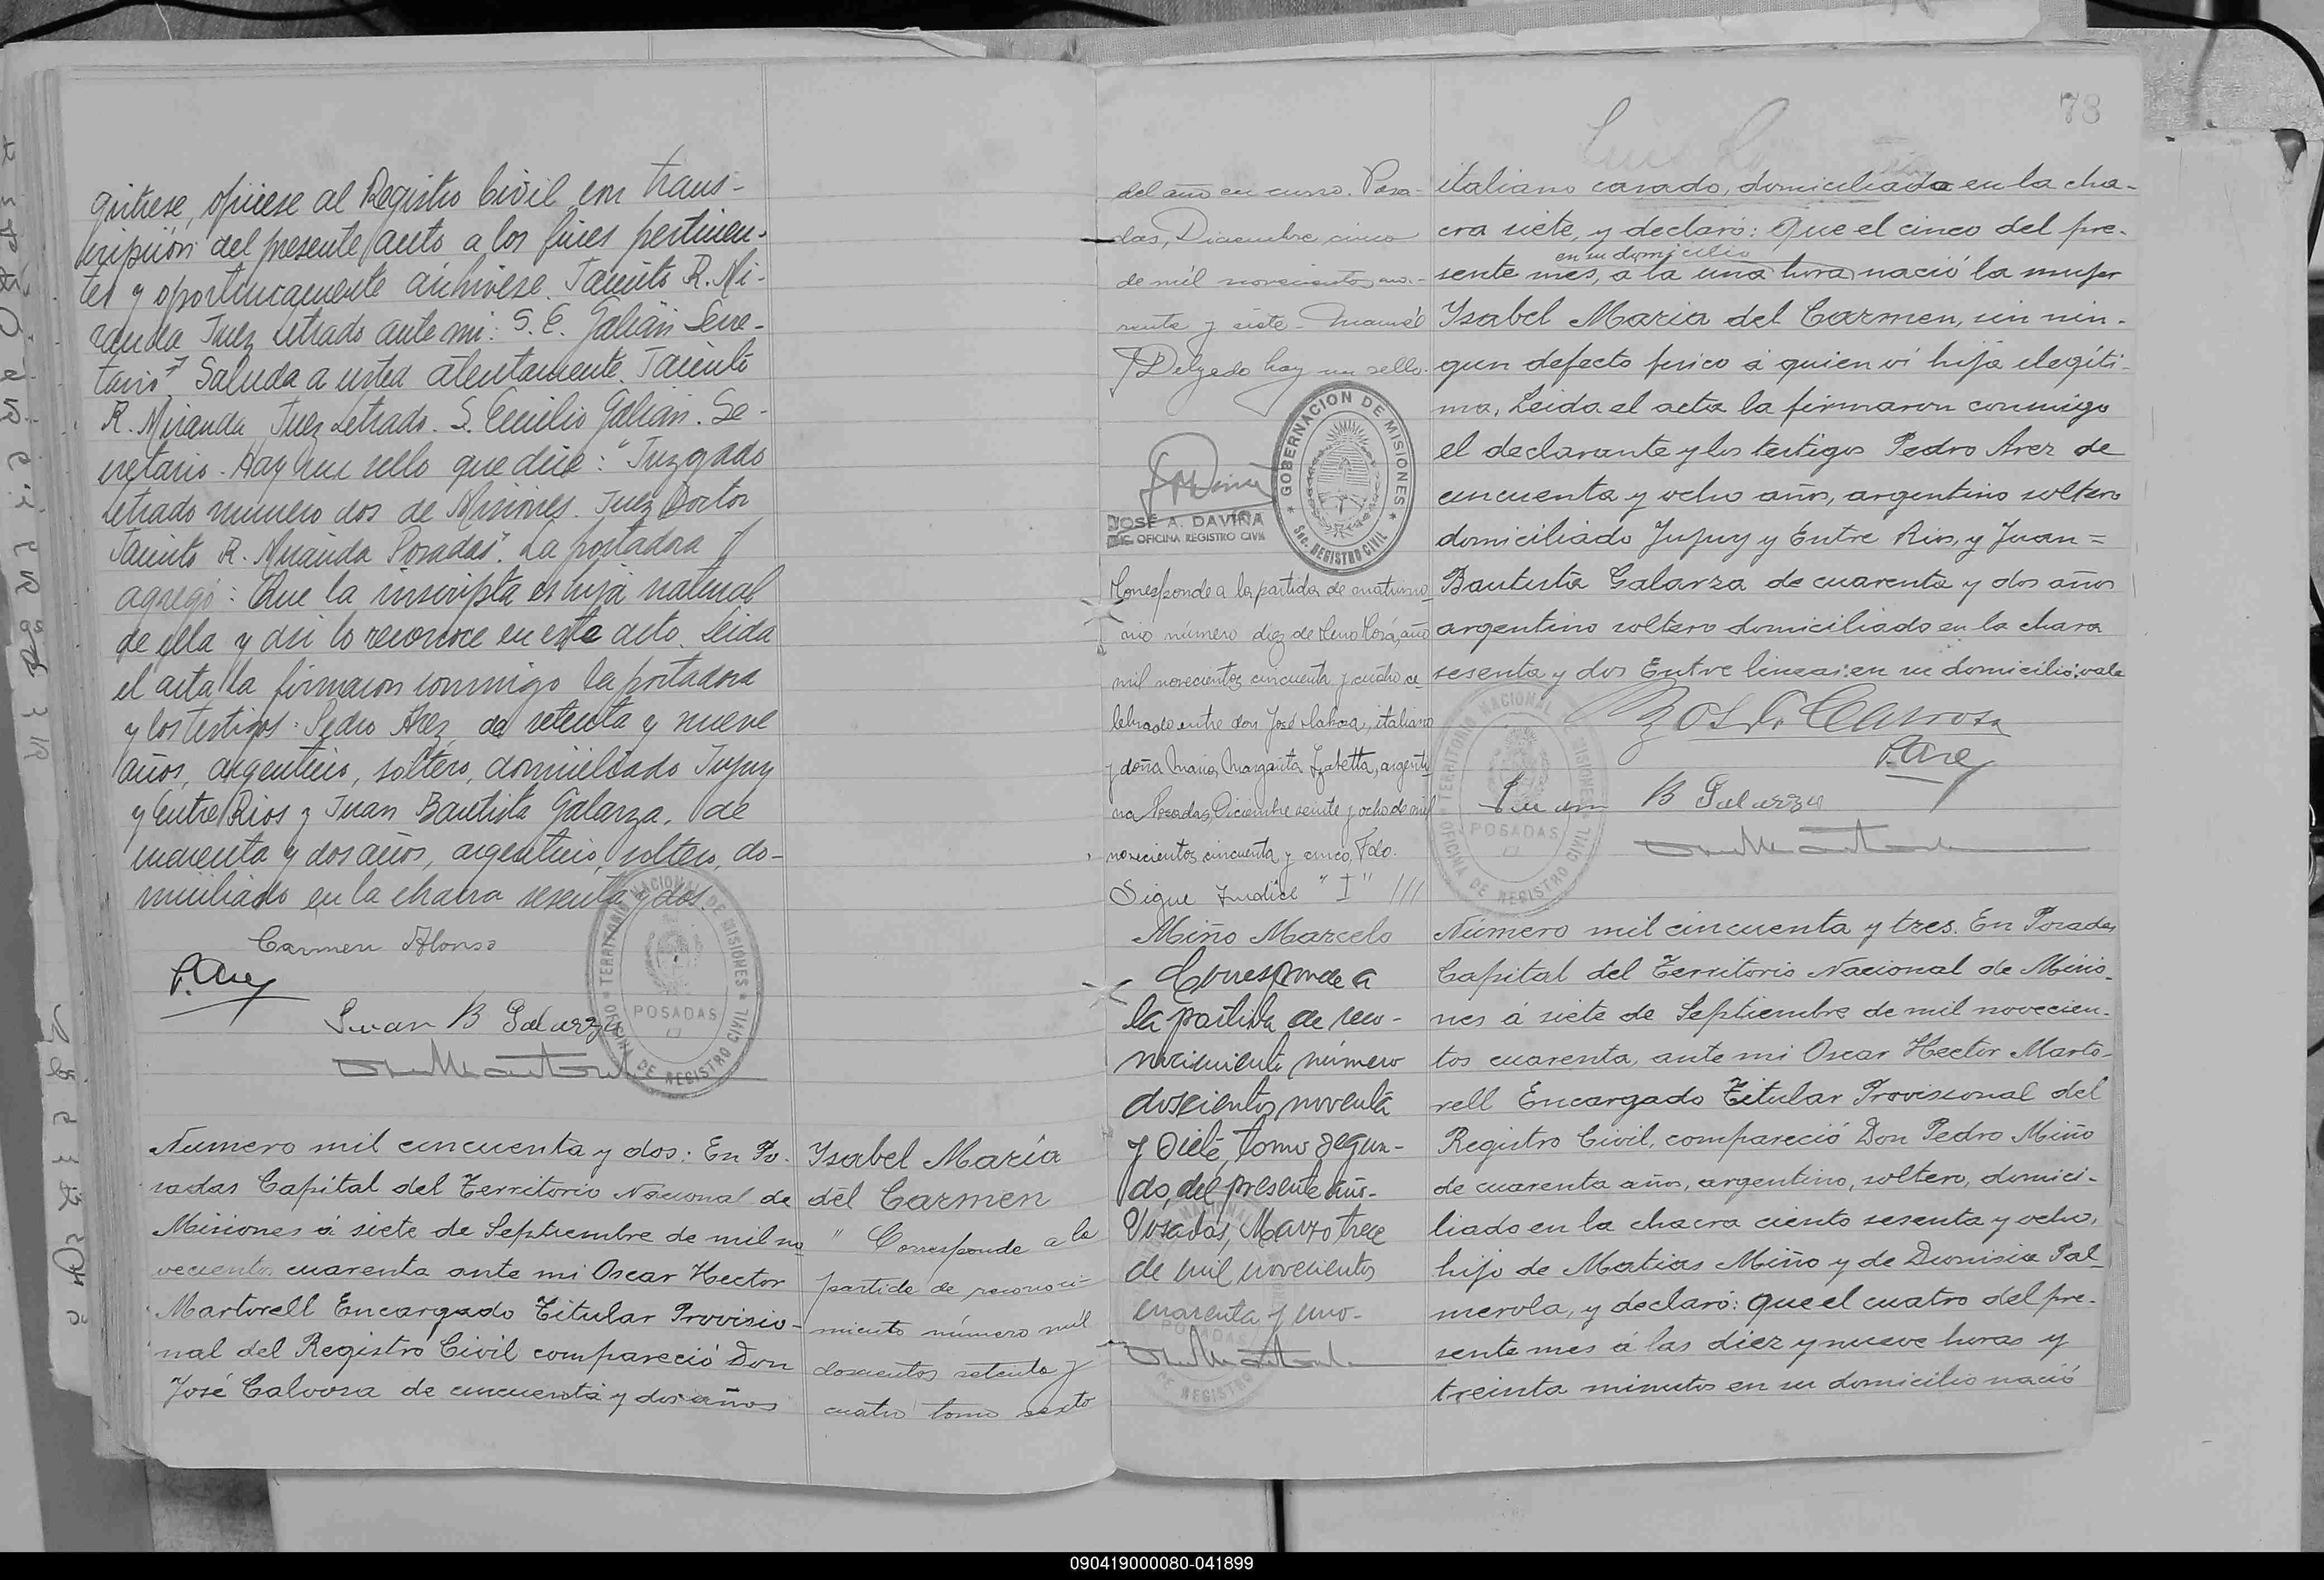 quítrese, ofíciese al Registro Civil con trans-
cripción del presente auto a los fines pertinen-
tes y oportunamente archívese. Jacinto R. Mi-
randa Juez Letrado ante mi: S. E. Galián Secre-
tario". Saluda a usted atentamente. Jacinto
R. Miranda Juez Letrado. S. Emilio Galián. Se-
cretario. Hay un sello que dice: "Juzgado
Letrado número dos de Misiones. Juez Doctor
Jacinto R. Miranda Posadas". La portadora
agregó: Que la inscripta es hija natural
de ella y así lo reconoce en este acto. Leida
el acta la firmaron conmigo la portadora
y los testigos: Pedro Arez de setenta y nueve
años, argentino, soltero, domiciliado Jujuy
y Entre Rios y Juan Bautista Galarza, de
cuarenta y dos años, argentino, soltero, do-
miciliado en la chacra sesenta y dos.
Carmen Alonso
P. Arez
Juan B Galarza
TERRITORIO NACIONAL DE MISIONES
POSADAS
OFICINA DE REGISTRO CIVIL
Número mil cincuenta y dos: En Po-
sadas Capital del Territorio Nacional de
Misiones á siete de Septiembre de mil no
vecientos cuarenta ante mi Oscar Hector
Martorell Encargado Titular Provisio-
nal del Registro Civil compareció Don
José Calvosa de cincuenta y dos años
Ysabel María
del Carmen
" Corresponde a la
partida de reconoci-
miento número mil
doscientos setenta y
cuatro tomo sexto
78
del año en curso. Posa-
das, Diciembre cinco
de mil novecientos cua-
renta y siete - Manuel
Delgado hay un sello.
GOBERNACION DE MISIONES
Sec. REGISTRO CIVIL
JOSÉ A. DAVIÑA
OFICINA REGISTRO CIVIL
Corresponde a la partida de matrimo-
nio número diez de año
mil novecientos cincuenta y cuatro ce-
lebrado entre don José italiano
y doña María Margarita argenti-
na Posadas, Diciembre veinte y ocho de mil
novecientos cincuenta y cinco, Fdo.
Sigue Indice "I" ///
italiano casado, domiciliado en la cha-
cra siete, y declaró: Que el cinco del pre-
en su domicilio
sente mes, a la una hora nació la mujer
Ysabel Maria del Carmen, sin nin-
gun defecto fisico á quien vi hija ilegíti-
ma, Leida el acta la firmaron conmigo
el declarante y los testigos Pedro Arez de
cincuenta y ocho años, argentino soltero
domiciliado Jujuy y Entre Rios, y Juan =
Bautista Galarza de cuarenta y dos años
argentino soltero domiciliado en la chara
sesenta y dos Entre lineas: en su domicilio: vale
P. Arez
Juan B Galarza
TERRITORIO NACIONAL DE MISIONES
POSADAS
OFICINA DE REGISTRO CIVIL
Miño Marcelo
Corresponde a
la partida de reco-
nocimiento número
doscientos noventa
y siete, tomo segun-
do, del presente año.
Posadas, Marzo trece
de mil novecientos
cuarenta y uno.
Número mil cincuenta y tres. En Posadas
Capital del Territorio Nacional de Misio-
nes á siete de Septiembre de mil novecien-
tos cuarenta, ante mi Oscar Hector Marto-
rell Encargado Titular Provisional del
Registro Civil, compareció Don Pedro Miño
de cuarenta años, argentino, soltero, domici-
liado en la chacra ciento sesenta y ocho,
hijo de Matias Miño y de Dionisia Pal
merola, y declaró: Que el cuatro del pre-
sente mes á las diez y nueve horas y
treinta minutos en su domicilio nació
090419000080-041899